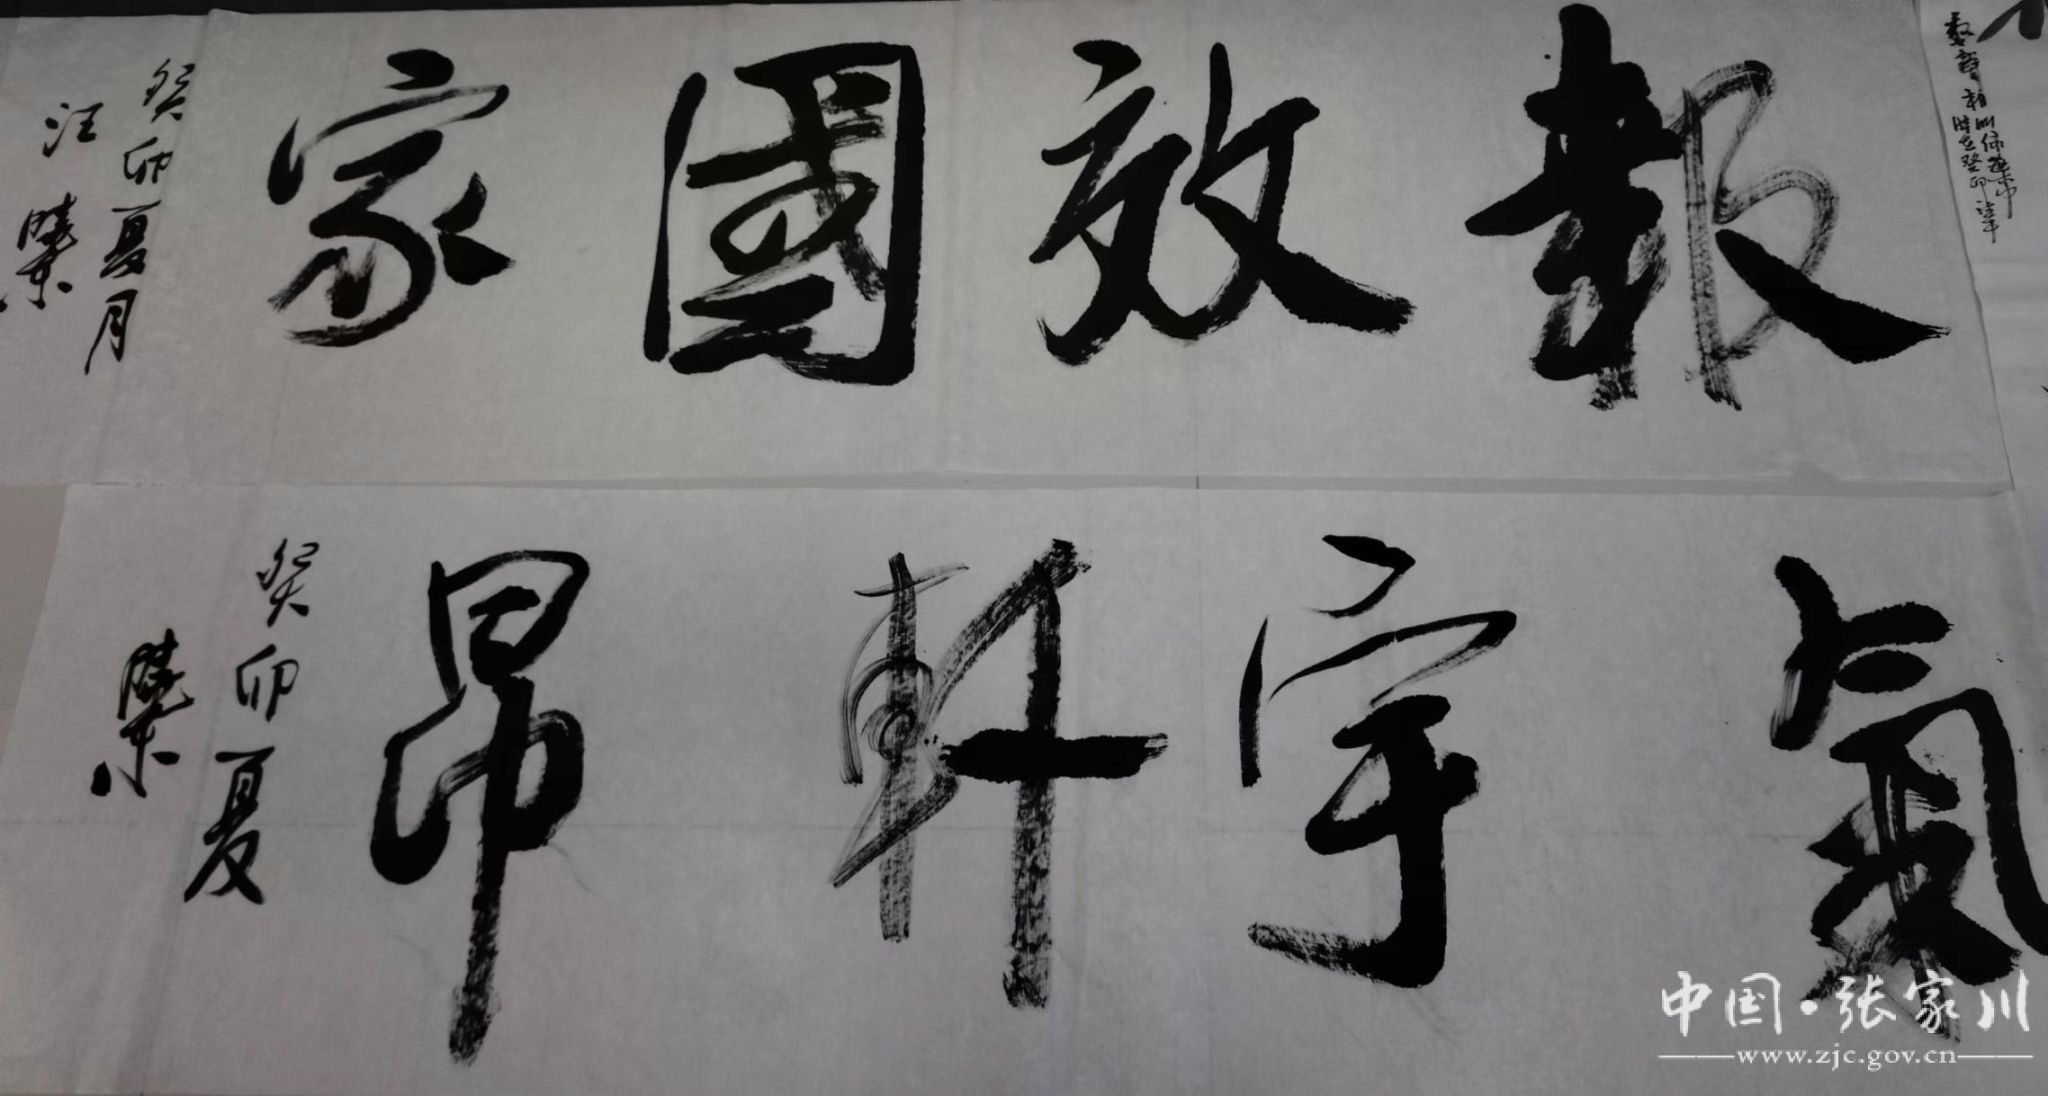 報效國家
癸卯夏月
汪曉東
氣宇軒昂
癸卯夏
曉東
中国·张家川
www.zjc.gov.cn